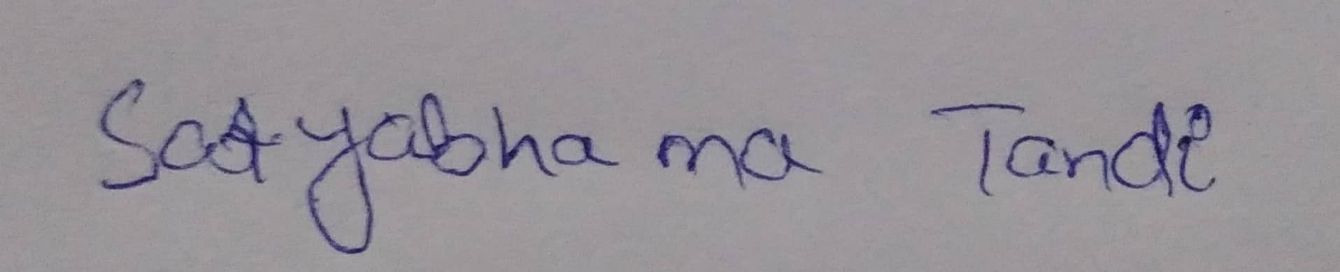 Satyabhama Tandi